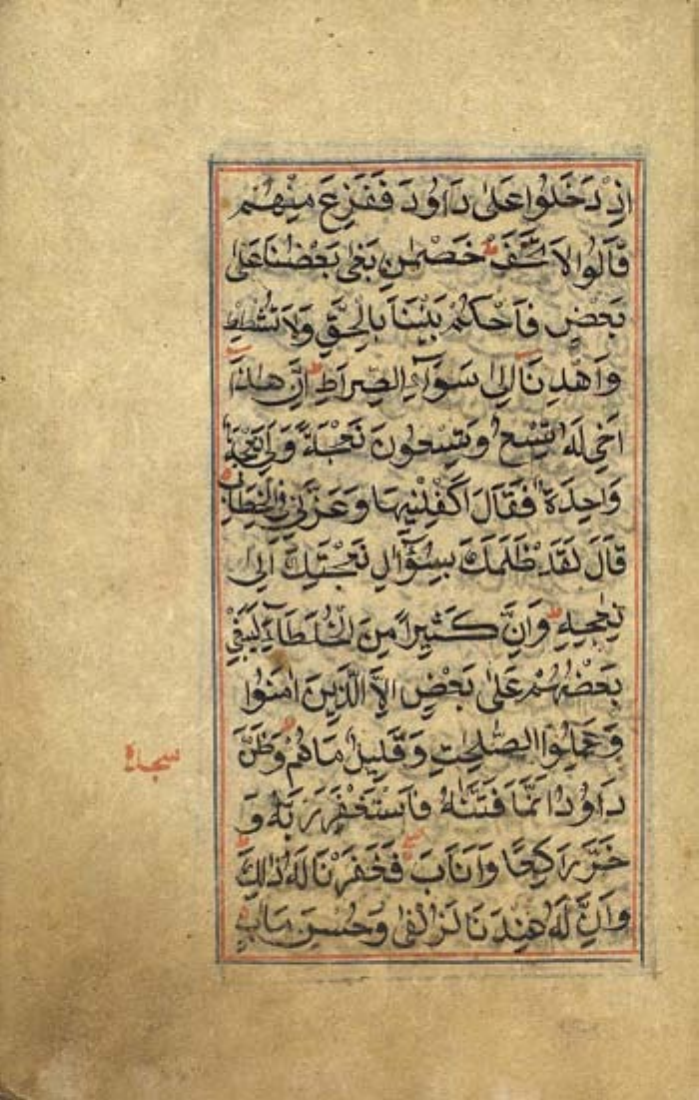 اِذْ دَخَلُوا عَلٰى دَاوُدَ فَفَزِعَ مِنْهُمْ
قَالُوا لَا تَخَفْ ط خَصْمٰنِ بَغٰى بَعْضُنَا عَلٰى
بَعْضٍ فَاحْكُمْ بَيْنَنَا بِالْحَقِّ وَلَا تُشْطِطْ
وَاهْدِنَا اِلٰى سَوَآءِ الصِّرَاطِ ط اِنَّ هٰذَا
اَخِي لَهُ تِسْعٌ وَتِسْعُونَ نَعْجَةً وَلِيَ نَعْجَةٌ
وَاحِدَةٌ فَقَالَ اَكْفِلْنِيهَا وَعَزَّنِي فِي الْخِطَابِ
قَالَ لَقَدْ ظَلَمَكَ بِسُؤَالِ نَعْجَتِكَ اِلٰى
نِعَاجِهِ ط وَاِنَّ كَثِيرًا مِنَ الْخُلَطَآءِ لَيَبْغِي
بَعْضُهُمْ عَلٰى بَعْضٍ اِلَّا الَّذِينَ اٰمَنُوا
وَعَمِلُوا الصّٰلِحٰتِ وَقَلِيلٌ مَا هُمْ وَظَنَّ
سجدة
دَاوُدُ اَنَّمَا فَتَنّٰهُ فَاسْتَغْفَرَ رَبَّهُ وَ
خَرَّ رَاكِعًا وَاَنَابَ فَغَفَرْنَا لَهُ ذٰلِكَ
وَاِنَّ لَهُ عِنْدَنَا لَزُلْفٰى وَحُسْنَ مَاٰبٍ